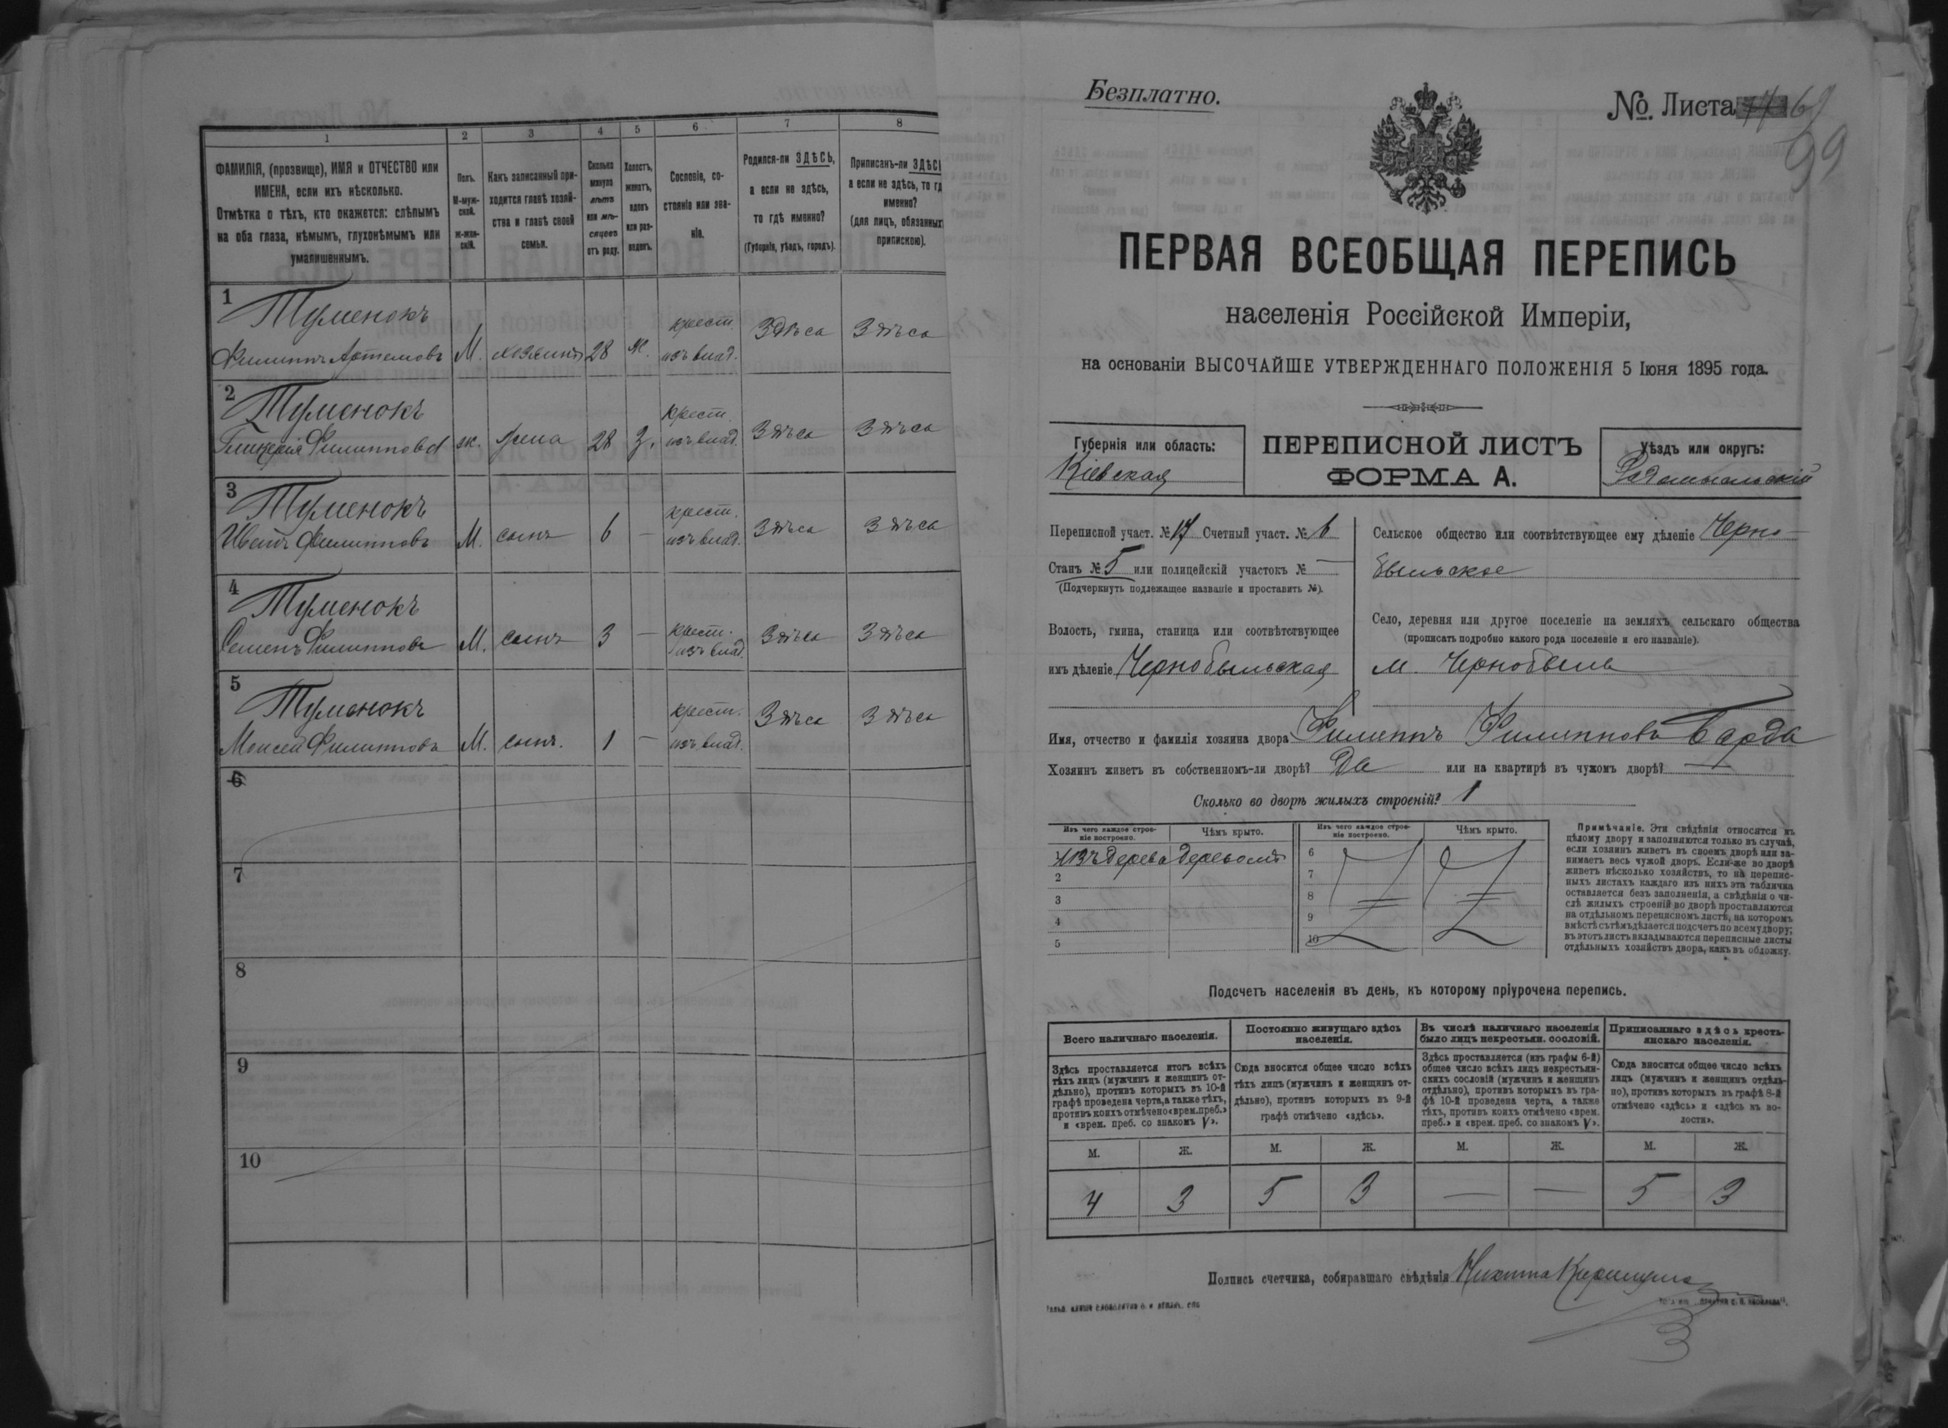 1
2
3
4
5
6
7
8
ФАМИЛІЯ, (прозвище), ИМЯ и ОТЧЕСТВО или
ИМЕНА, если ихъ нѣсколько.
Отмѣтка о тѣхъ, кто окажется: слѣпымъ
на оба глаза, нѣмымъ, глухонѣмымъ или
умалишеннымъ.
Полъ.
М-муж-
ской.
Ж-жен-
скій.
Какъ записанный при-
ходится главѣ хозяй-
ства и главѣ своей
семьи.
Сколько
минуло
лѣтъ
или мѣ-
сяцевъ
отъ роду.
Холостъ,
женатъ,
вдовъ
или раз-
веденъ.
Сословіе, со-
стояніе или зва-
ніе.
Родился-ли ЗДѢСЬ,
а если не здѣсь,
то гдѣ именно?
(Губернія, уѣздъ, городъ).
Приписанъ-ли ЗДѢСЬ
а если не здѣсь, то гд
именно?
(для лицъ, обязанных
припискою).
1 Туменокъ
Филиппъ Артемовъ М. хозяинъ 28 ж. крест. изъ влад. Здѣсь Здѣсь
2 Туменокъ
Филиппова ж. жена 28 З. крест. изъ влад. Здѣсь Здѣсь
3 Туменокъ
Филипповъ М. сынъ 6 — крест. изъ влад. Здѣсь Здѣсь
4 Туменокъ
Семенъ Филипповъ М. сынъ 3 — крест. изъ влад. Здѣсь Здѣсь
5 Туменокъ
Моисей Филипповъ М. сынъ. 1 — крест. изъ влад. Здѣсь Здѣсь
6
7
8
9
10
Безплатно.
№. Листа 69
99
ПЕРВАЯ ВСЕОБЩАЯ ПЕРЕПИСЬ
населенія Россійской Имперіи,
на основаніи ВЫСОЧАЙШЕ УТВЕРЖДЕННАГО ПОЛОЖЕНІЯ 5 Іюня 1895 года.
Губернія или область:
Кіевская
ПЕРЕПИСНОЙ ЛИСТЪ
ФОРМА А.
Уѣздъ или округъ:
Радомысльскій
Переписной участ. № 17 Счетный участ. № 6
Станъ № 5 или полицейскій участокъ № —
(Подчеркнуть подлежащее названіе и проставить №).
Волость, гмина, станица или соотвѣтствующее
имъ дѣленіе Чернобыльская
Сельское общество или соотвѣтствующее ему дѣленіе Черно-
быльское
Село, деревня или другое поселеніе на земляхъ сельскаго общества
(прописать подробно какого рода поселеніе и его названіе).
м. Чернобыль
Имя, отчество и фамилія хозяина двора Филиппъ Филипповъ Барда
Хозяинъ живетъ въ собственномъ-ли дворѣ? Да или на квартирѣ въ чужомъ дворѣ? —
Сколько во дворѣ жилыхъ строеній? 1
Изъ чего каждое строе-
ніе построено.
Чѣмъ крыто.
Изъ чего каждое строе-
ніе построено.
Чѣмъ крыто.
1 изъ дерева деревомъ
2
3
4
5
6
7
8
9
10
Примѣчаніе. Эти свѣдѣнія относятся къ
цѣлому двору и заполняются только въ случаѣ,
если хозяинъ живетъ въ своемъ дворѣ или за-
нимаетъ весь чужой дворъ. Если-же во дворѣ
живетъ нѣсколько хозяйствъ, то на перепис-
ныхъ листахъ каждаго изъ нихъ эта табличка
оставляется безъ заполненія, а свѣдѣнія о чи-
слѣ жилыхъ строеній во дворѣ проставляются
на отдѣльномъ переписномъ листѣ, на которомъ
вмѣстѣ съ тѣмъ дѣлается подсчетъ по всему двору;
въ этотъ листъ вкладываются переписные листы
отдѣльныхъ хозяйствъ двора, какъ въ обложку.
Подсчетъ населенія въ день, къ которому пріурочена перепись.
Всего наличнаго населенія.
Постоянно живущаго здѣсь
населенія.
Въ числѣ наличнаго населенія
было лицъ некрестьян. сословій.
Приписаннаго здѣсь кресть-
янскаго населенія.
Здѣсь проставляется итогъ всѣхъ
тѣхъ лицъ (мужчинъ и женщинъ от-
дѣльно), противъ которыхъ въ 10-й
графѣ проведена черта, а также тѣхъ,
противъ коихъ отмѣчено «врем. преб.»
и «врем. преб. со знакомъ V».
Сюда вносится общее число всѣхъ
тѣхъ лицъ (мужчинъ и женщинъ от-
дѣльно), противъ которыхъ въ 9-й
графѣ отмѣчено «здѣсь».
Здѣсь проставляется (изъ графы 6-й)
общее число всѣхъ лицъ некрестьян-
скихъ сословій (мужчинъ и женщинъ
отдѣльно), противъ которыхъ въ гра-
фѣ 10-й проведена черта, а также
тѣхъ, противъ коихъ отмѣчено «врем.
преб.» и «врем. преб. со знакомъ V».
Сюда вносится общее число всѣхъ
лицъ (мужчинъ и женщинъ отдѣль-
но), противъ которыхъ въ графѣ 8-й
отмѣчено «здѣсь» и «здѣсь въ во-
лости».
М. Ж. М. Ж. М. Ж. М. Ж.
4 3 5 3 — — 5 3
Подпись счетчика, собиравшаго свѣдѣнія Никита
3